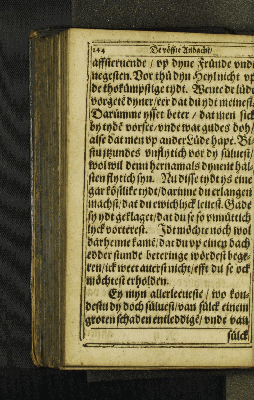 244 De vöffte Andacht/
affsternende / vp dyne Fründe vnde
negesten. Vor thü dyn Heyl nicht vp
de thokümpstige tydt. Wente de lüde
vorgetē dyner/eer dat du ydt meinest.
Darümme ysset beter / dat men sick
by tydē vorsee/ vnde wat gudes doh/
alse dat men vp ander Lüde hape. Bi-
stu itzundes vnflytich vor dy süluest/
wol wil denn hernamals dynent hal-
uen flytich syn. Nu disse tydt ys eine
gar köstlike tydt/ darinne du erlangen
machst/ dat du ewichlyck leuest. Gade
sy ydt geklaget/ dat du se so vnnüttich
lyck vorterest. Idt möchte noch wol
dar henne kamē/ dat du vp einen dach
edder stunde beteringe wördest bege-
ren/ ick weet auerst nicht/ efft du se ock
möchtest erholden.
Ey myn allerleueste / wo kon-
destu dy doch süluest/ van sülck einem
groten schaden entleddigē/ vnde van
sülck